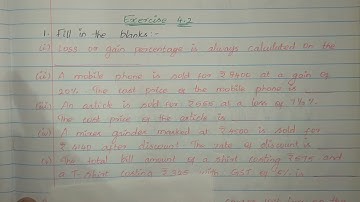 Exercise 4.2
1. Fill in the blanks:-
(i) Loss or gain percentage is always calculated on the
(ii) A mobile phone is sold for ₹8400 at a gain of
20%. The cost price of the mobile phone is
(iii) An article is sold for ₹555 at a loss of 7½%.
The cost price of the article is
(iv) A mixer grinder marked at ₹4500 is sold for
₹4140 after discount. The rate of discount is
(v) The total bill amount of a shirt costing ₹575 and
a T-shirt costing ₹325 with GST of 5% is